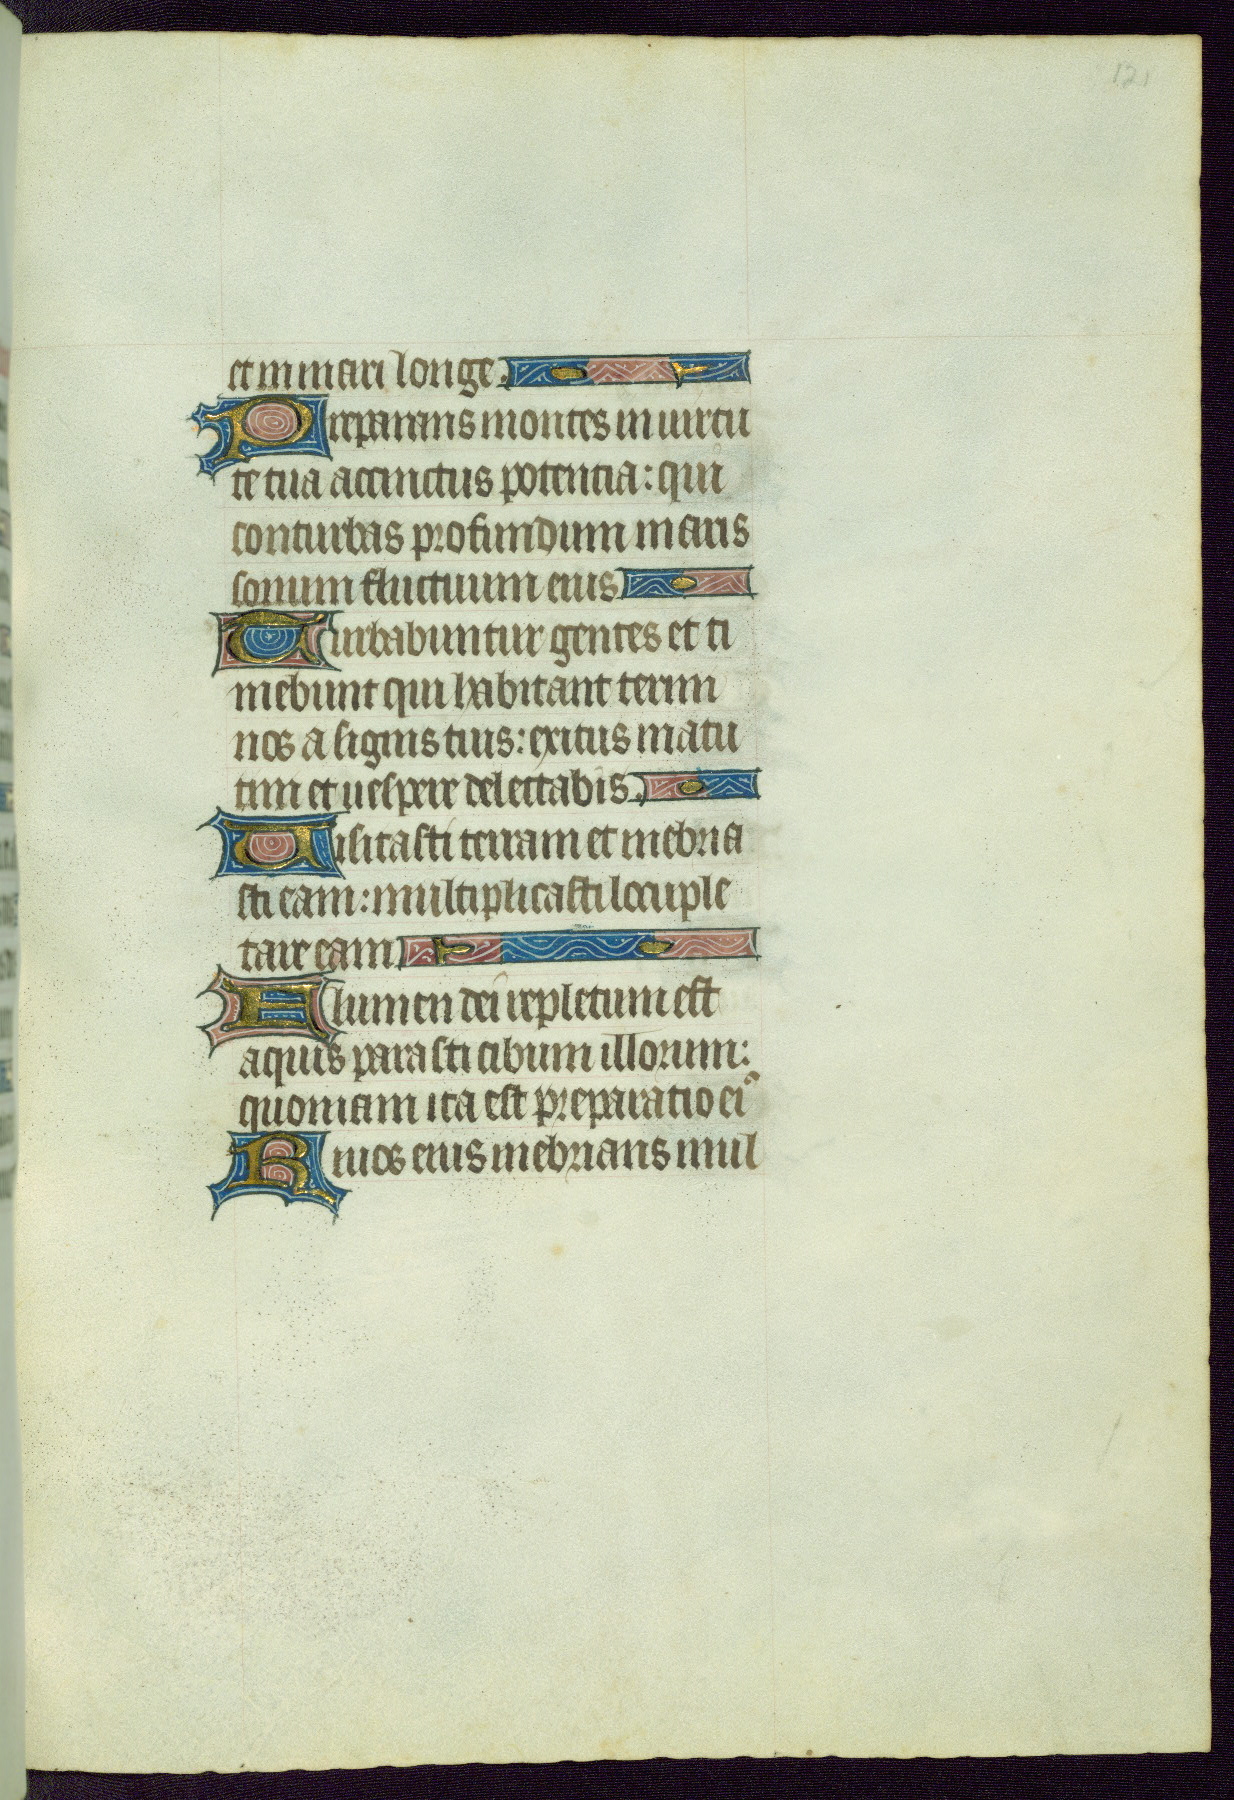 121
et in mari longe.
Preparans montes in uirtu
te tua accinctus potentia: qui
conturbas profundum maris
sonum fluctuum eius
Turbabuntur gentes et ti
mebunt qui habitant termi
nos a signis tuis: exitus matu
tini et uespere delectabis.
Uisitasti terram et inebria
sti eam: multiplicasti locuple
tare eam
Flumen dei repletum est
aquis parasti cibum illorum:
quoniam ita est preparatio eiꝰ
Riuos eius inebrians mul